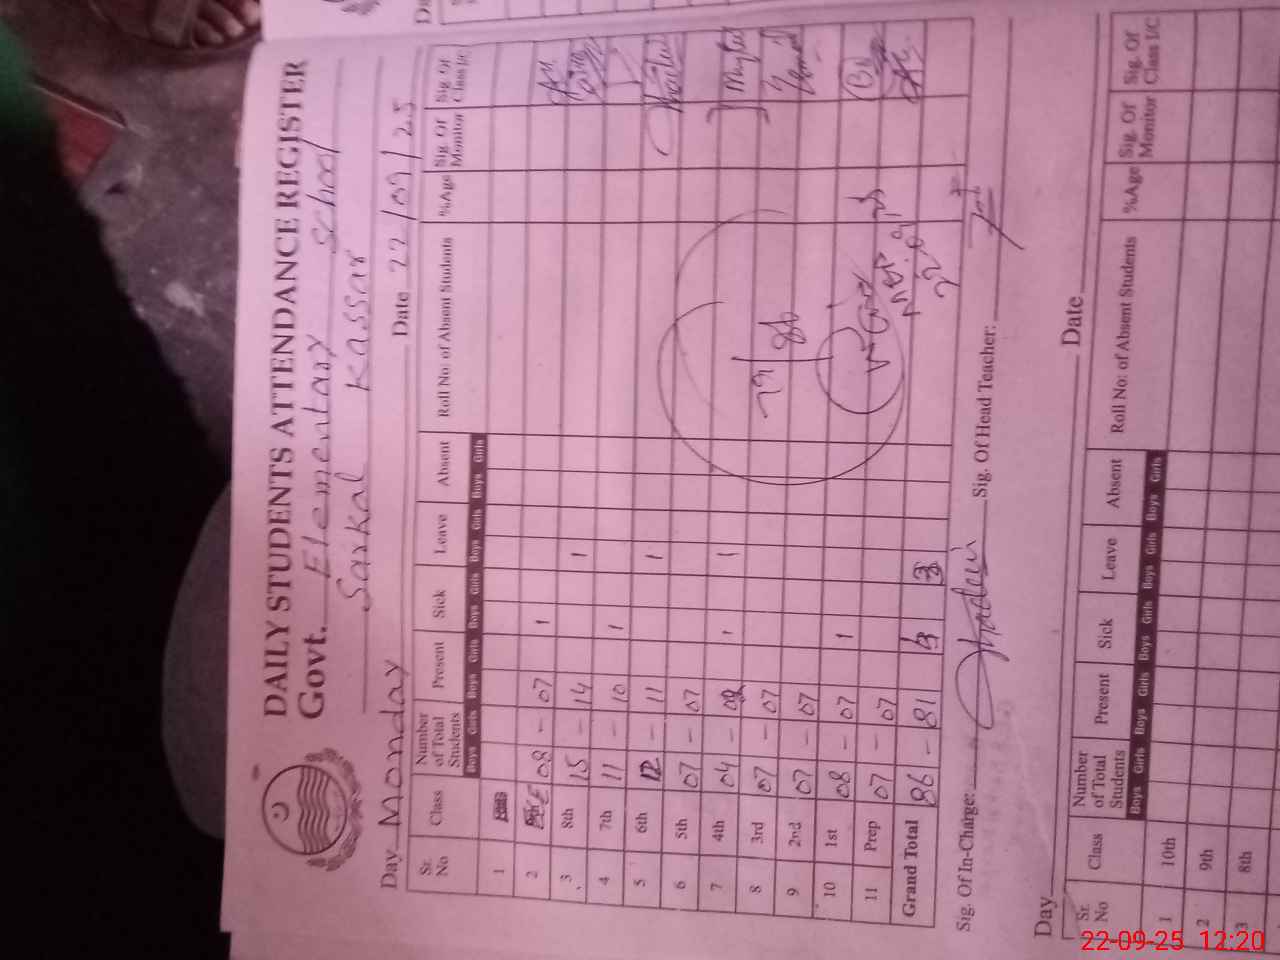 DAILY STUDENTS ATTENDANCE REGISTER
Govt. Elementary School
Sarkal Kassar
Day Monday Date 22/09/25
Sr. No Class Number of Total Students Present Sick Leave Absent Roll No: of Absent Students %Age Sig. Of Monitor Sig. Of Class I/C
Boys Girls Boys Girls Boys Girls Boys Girls Boys Girls
1
2 ECE 08 - 07 1
3 8th 15 - 14 1
4 7th 11 - 10 1
5 6th 12 - 11 1
6 5th 07 - 07
7 4th 04 - 1 1
8 3rd 07 - 07
9 2nd 07 - 07
10 1st 08 - 07 1
11 Prep 07 - 07
Grand Total 86 - 81 3
79 86
22.09.25
Sig. Of In-Charge: Sig. Of Head Teacher:
Day Date
Sr. No Class Number of Total Students Present Sick Leave Absent Roll No: of Absent Students %Age Sig. Of Monitor Sig. Of Class I/C
Boys Girls Boys Girls Boys Girls Boys Girls Boys Girls
1 10th
2 9th
3 8th
22-09-25 12:20